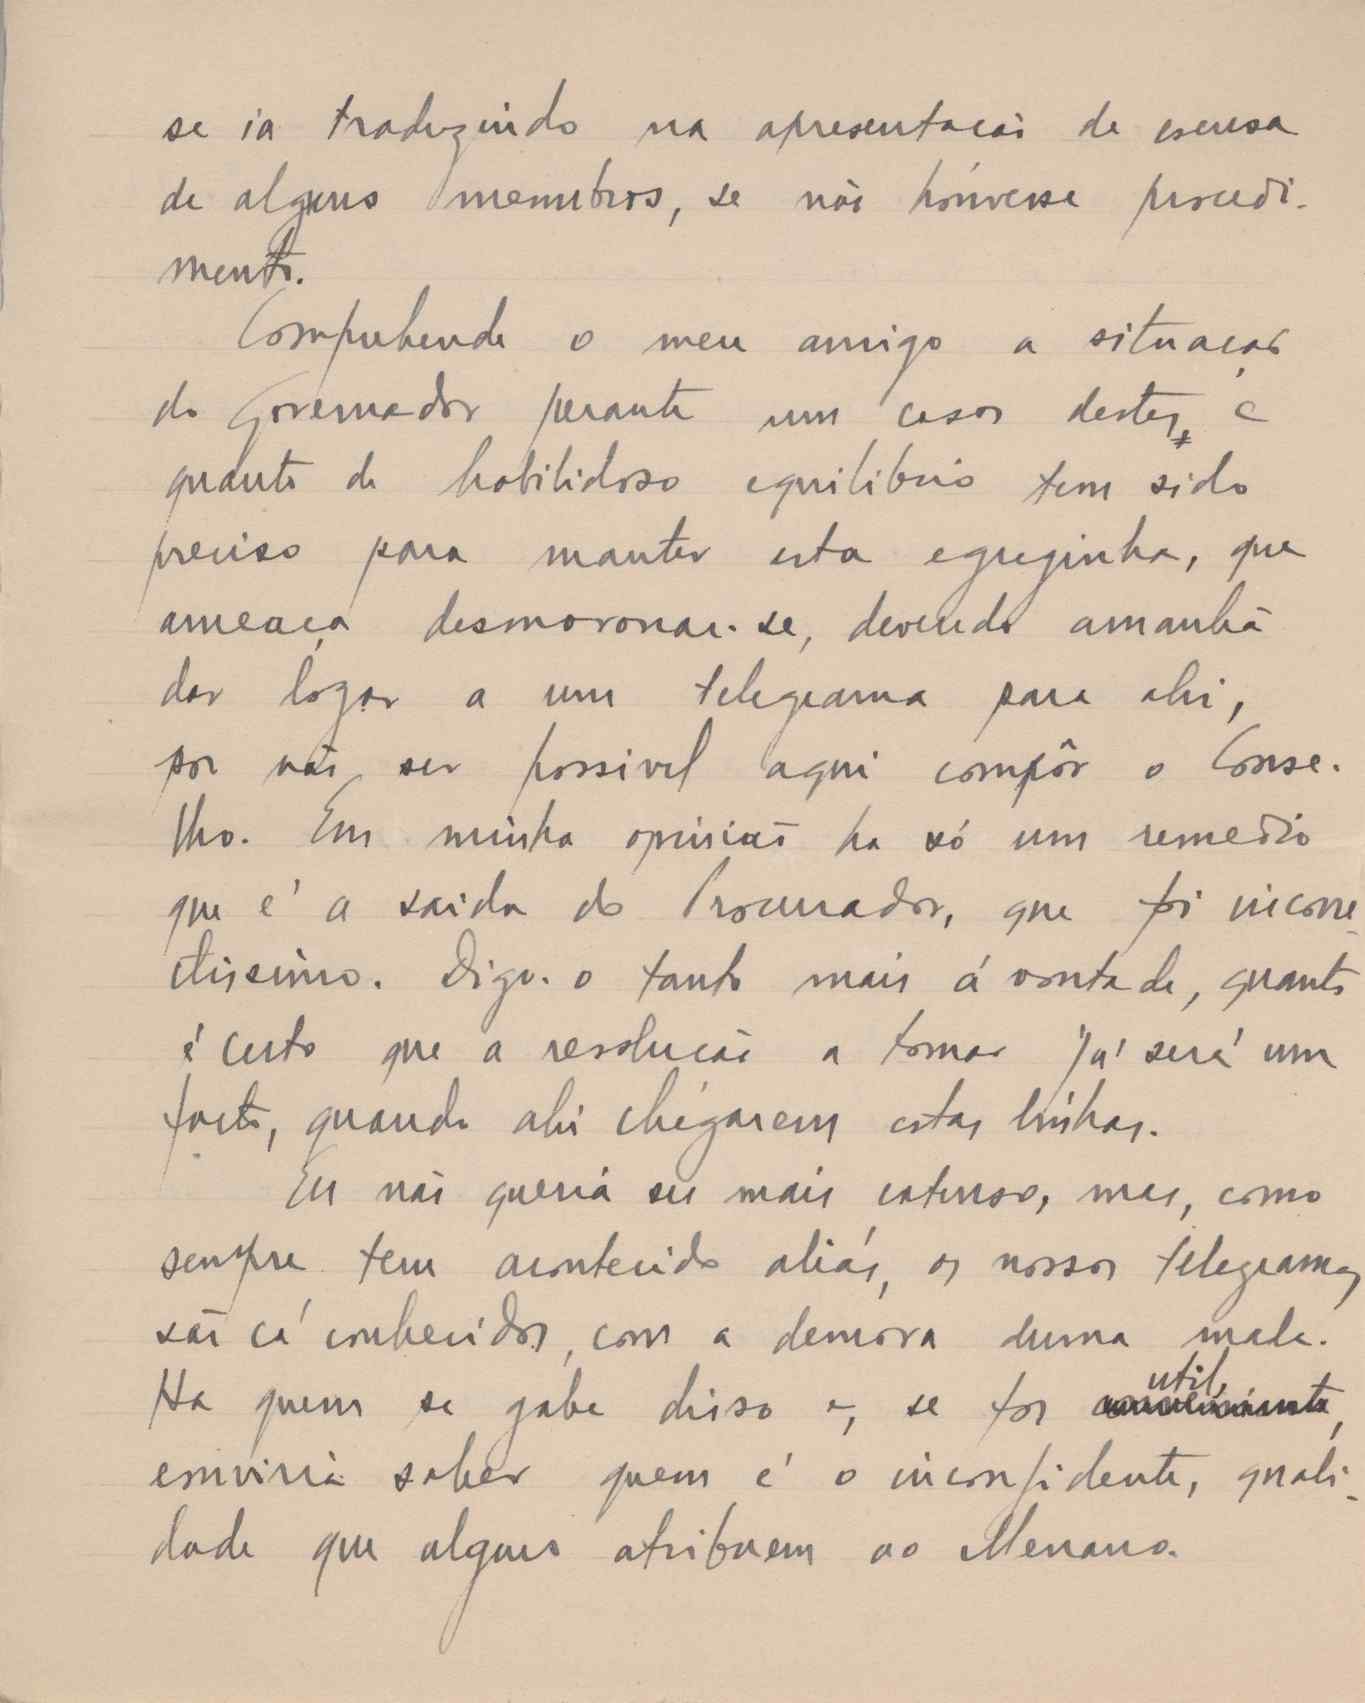 se ia traduzindo na apresentação de escusa
de alguns membros, se não houvesse procedi-
mento.
Comprehende o meu amigo a situação
do Governador perante um casos destes, e
quanto de habilidoso equilibrio tem sido
preciso para manter esta egreginha, que
ameaça desmoronar-se, devendo amanhã
dar logar a um telegrama para ahi,
por não ser possivel aqui compôr o Conse-
lho. Em minha opinião ha só um remedio
que é a saida do Procurador, que foi incorre-
ctissimo. Digo-o tanto mais á vontade, quanto
é certo que a resolução a tomar já será um
facto, quando ahi chegarem estas linhas.
Eu não queria ser mais extenso, mas, como
sempre tem acontecido aliás, os nossos telegramas
são cá conhecidos, com a demora duma mala.
Ha quem se gabe disso e, se for util,
conviria saber quem é o inconfidente, quali-
dade que alguns atribuem ao Menano.